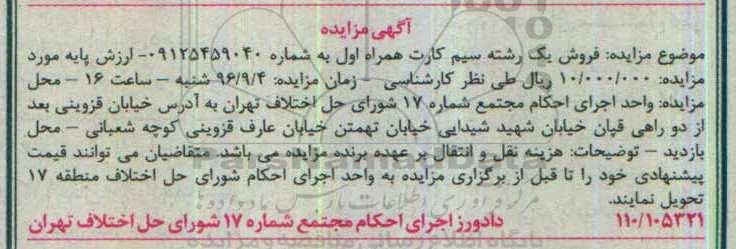 آگهی مزایده
موضوع مزایده: فروش یک رشته سیم کارت همراه اول به شماره ۰۹۱۲۵۴۵۹۰۴۰- ارزش پایه مورد
مزایده: ۱۰/۰۰۰/۰۰۰ ریال طی نظر کارشناسی – زمان مزایده: ۹۶/۹/۴ شنبه – ساعت ۱۶ – محل
مزایده: واحد اجرای احکام مجتمع شماره ۱۷ شورای حل اختلاف تهران به آدرس خیابان قزوینی بعد
از دو راهی قپان خیابان شهید شیدایی خیابان تهمتن خیابان عارف قزوینی کوچه شعبانی – محل
بازدید – توضیحات: هزینه نقل و انتقال بر عهده برنده مزایده می باشد. متقاضیان می توانند قیمت
پیشنهادی خود را تا قبل از برگزاری مزایده به واحد اجرای احکام شورای حل اختلاف منطقه ۱۷
تحویل نمایند.
۱۱۰/۱۰۵۳۲۱ دادورز اجرای احکام مجتمع شماره ۱۷ شورای حل اختلاف تهران